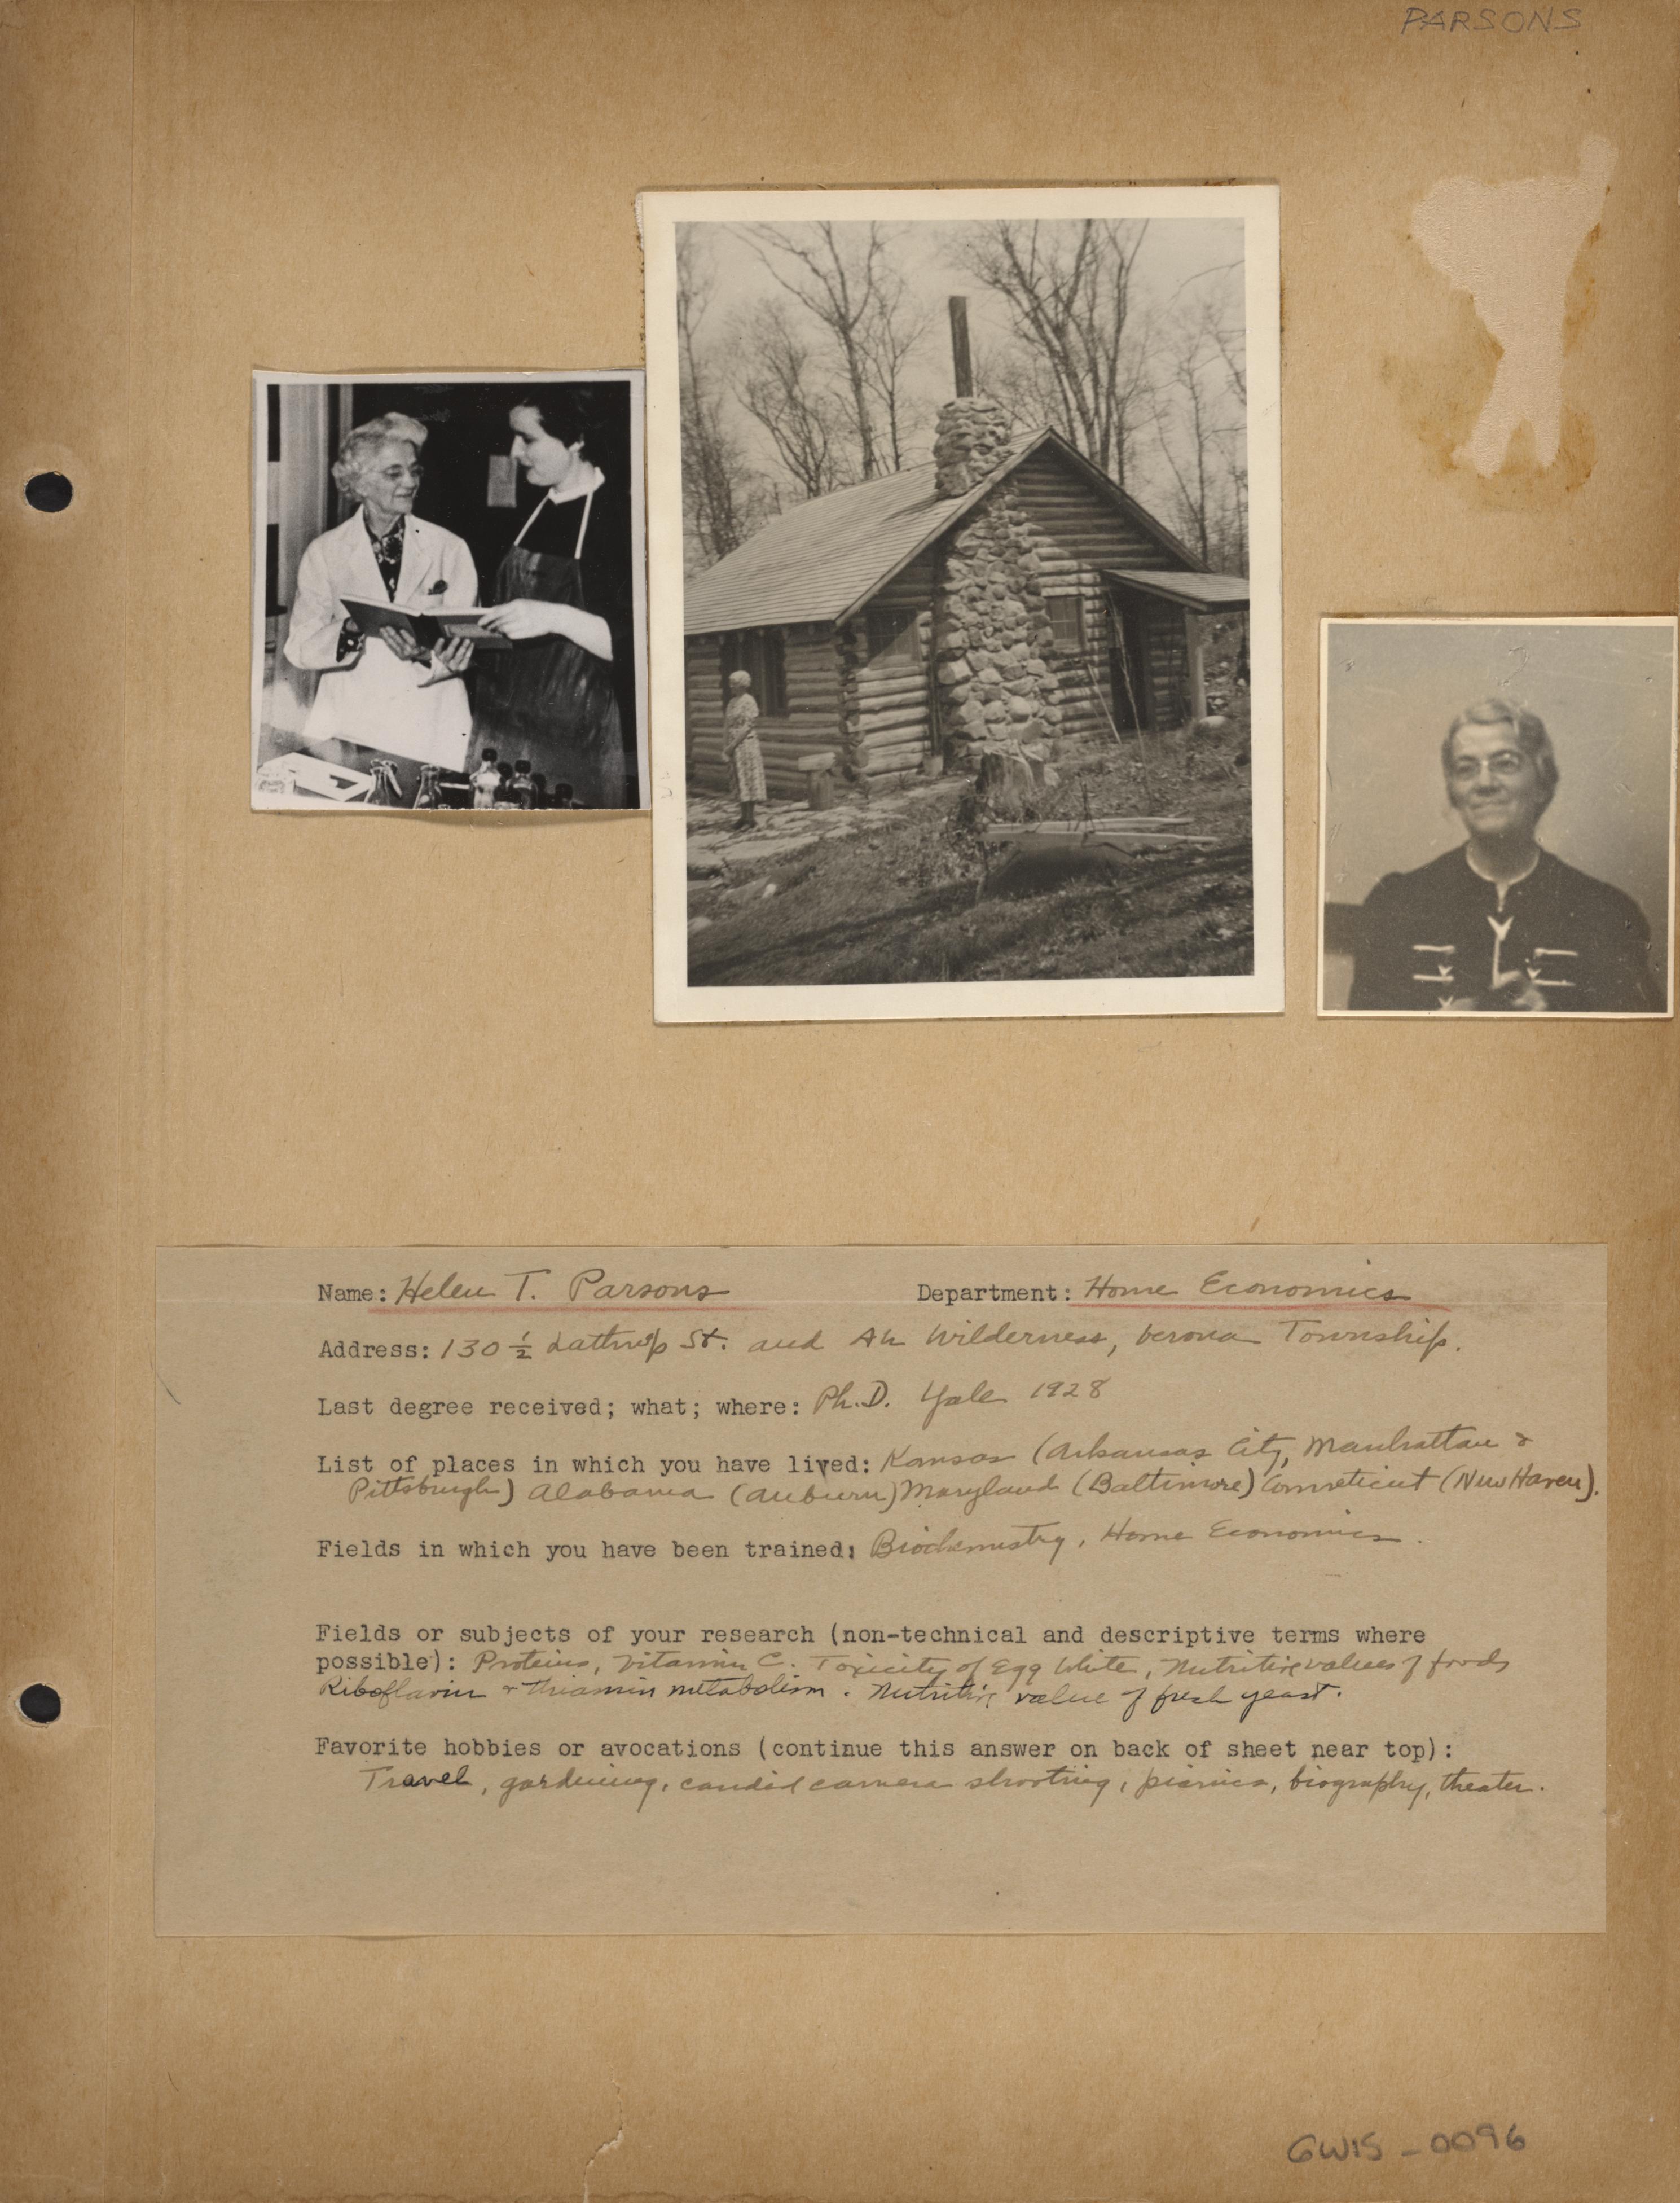 PARSONS
Name: Helen T. Parsons Department: Home Economics
Address: 130 ½ Lathrop St. and Ah Wilderness, Verona Township.
Last degree received; what; where: Ph.D. Yale 1928
List of places in which you have lived: Kansas (Arkansas City, Manhattan &
Pittsburgh) Alabama (Auburn) Maryland (Baltimore) Conneticut (New Haven).
Fields in which you have been trained: Biochemistry, Home Economics.
Fields or subjects of your research (non-technical and descriptive terms where
possible): Proteins, Vitamin C. Toxicity of Egg White, Nutritive values of foods
Riboflavin & Thiamin metabolism. Nutritive value of fresh yeast.
Favorite hobbies or avocations (continue this answer on back of sheet near top):
Travel, gardening, candid camera shooting, picnics, biography, theater.
GWIS-0096